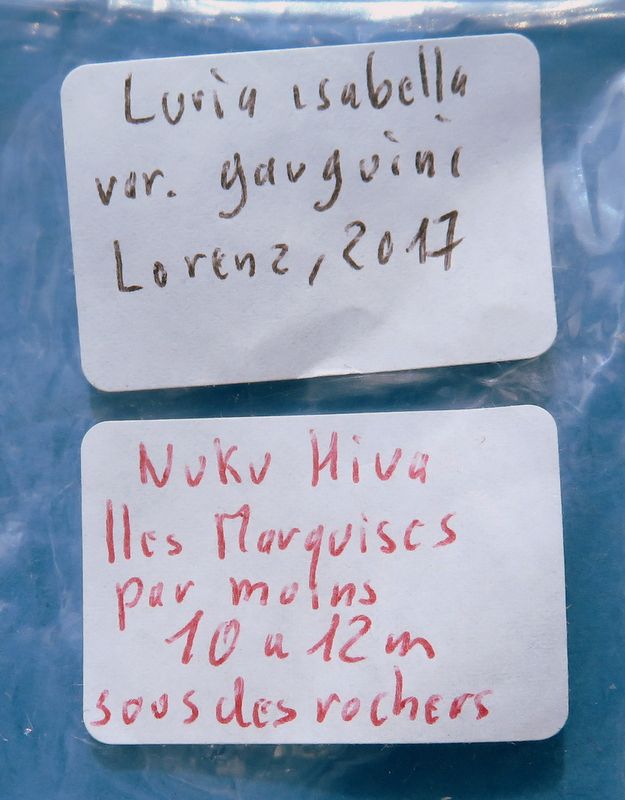 Luria isabella
var. gauguini
Lorenz, 2017
Nuku Hiva
Iles Marquises
par moins
10 a 12 m
sous des rochers